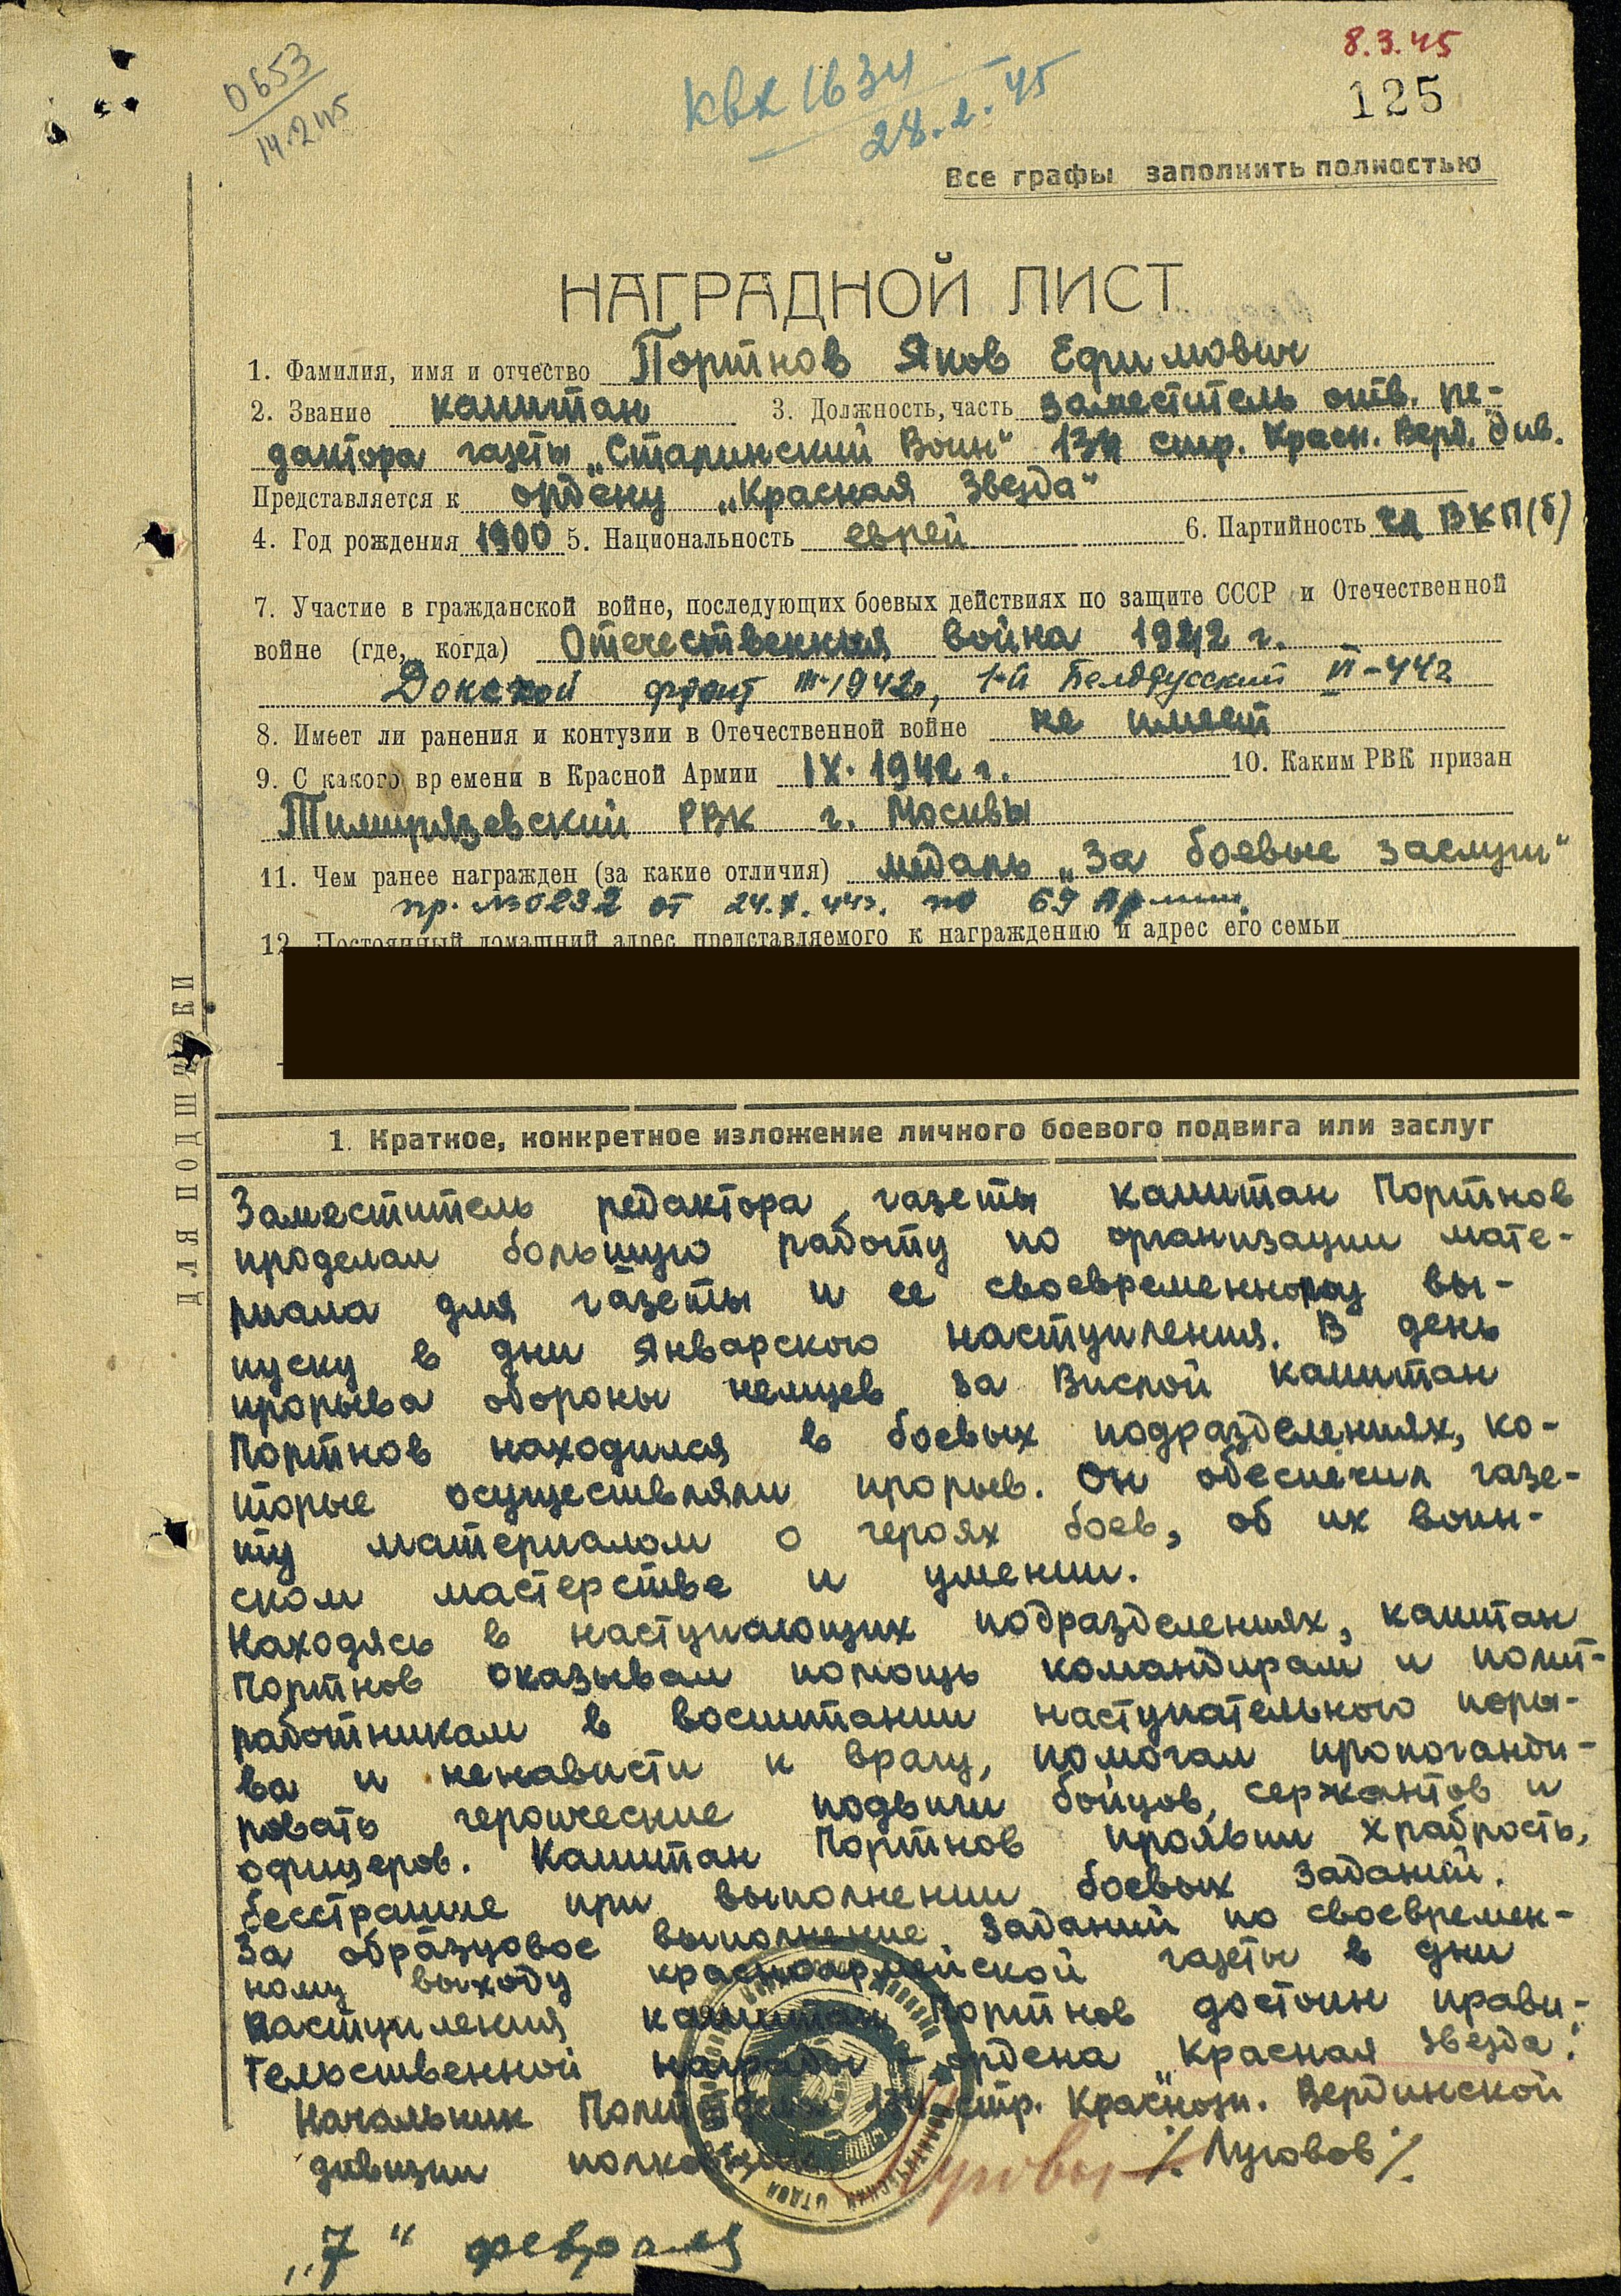 8.3.45
0653
14.2.45
КВХ 1634
28.2.45
125
Все графы заполнить полностью
НАГРАДНОЙ ЛИСТ
1. Фамилия, имя и отчество Портнов Яков Ефимович
2. Звание капитан 3. Должность, часть заместитель отв. ре-
дактора газеты „Сталинский Воин“ 134 стр. Красн. Верд. див.
Представляется к ордену „Красная Звезда“
4. Год рождения 1900 5. Национальность еврей 6. Партийность чл ВКП(б)
7. Участие в гражданской войне, последующих боевых действиях по защите СССР и Отечественной
войне (где, когда) Отечественная война 1942 г.
Донской фронт III-1942г, 1-й Белорусский II-44г
8. Имеет ли ранения и контузии в Отечественной войне не имеет
9. С какого времени в Красной Армии IX. 1942 г. 10. Каким РВК призан
Тимирязевский РВК г. Москвы
11. Чем ранее награжден (за какие отличия) медаль „За боевые заслуги“
пр. №0232 от 24.X.44г. по 69 Армии.
12. Постоянный домашний адрес представляемого к награждению и адрес его семьи
ДЛЯ ПОДШИВКИ
1. Краткое, конкретное изложение личного боевого подвига или заслуг
Заместитель редактора газеты капитан Портнов
проделал большую работу по организации мате-
риала для газеты и ее своевременному вы-
пуску в дни Январского наступления. В день
прорыва обороны немцев за Вислой капитан
Портнов находился в боевых подразделениях, ко-
торые осуществляли прорыв. Он обеспечил газе-
ту материалом о героях боев, об их воин-
ском мастерстве и умении.
Находясь в наступающих подразделениях, капитан
Портнов оказывал помощь командирам и полит-
работникам в воспитании наступательного поры-
ва и ненависти к врагу, помогал пропоганди-
ровать героические подвиги бойцов, сержантов и
офицеров. Капитан Портнов проявил храбрость,
бесстрашие при выполнении боевых заданий.
За образцовое выполнение заданий по своевремен-
ному выходу красноармейской газеты в дни
наступления капитан Портнов достоин прави-
тельственной награды – ордена „Красная Звезда“.
Начальник Политотдела 134 стр. Краснозн. Вердинской
дивизии полковник /Луговов/
„7“ февраля